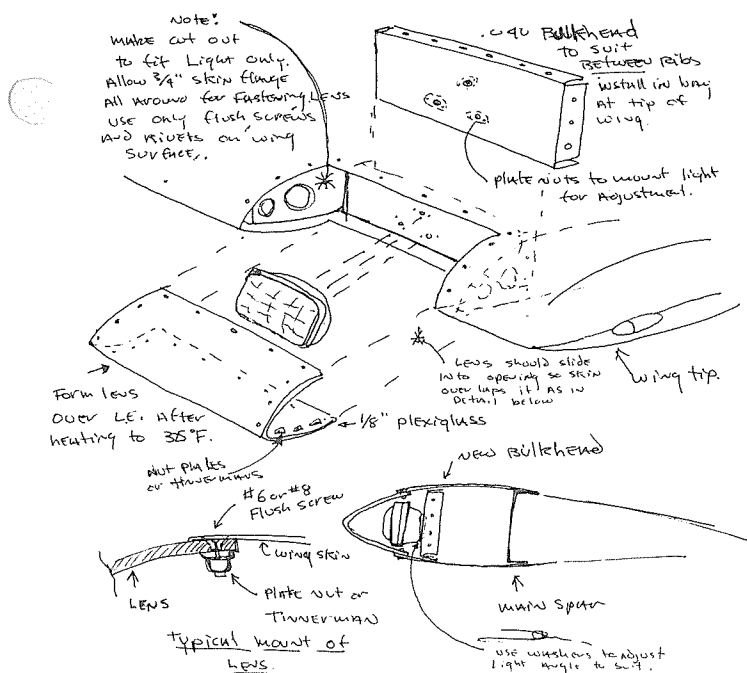 NOTE:
MAKE CUT OUT
TO FIT LIGHT ONLY.
ALLOW 3/4" SKIN FLANGE
ALL AROUND FOR FASTENING LENS
USE ONLY FLUSH SCREWS
AND RIVETS ON WING
SURFACE.
.040 BULKHEAD
TO SUIT
BETWEEN RIBS
INSTALL IN BAY
AT TIP OF
WING.
PLATE NUTS TO MOUNT LIGHT
FOR ADJUSTMENT.
LENS SHOULD SLIDE
INTO OPENING SO SKIN
OVER LAPS IT AS IN
DETAIL BELOW
WING TIP.
FORM LENS
OVER L.E. AFTER
HEATING TO
1/8" PLEXIGLASS
NUT PLATES
OR TINNERMANS
#6 OR #8
FLUSH SCREW
WING SKIN
LENS
PLATE NUT OR
TINNERMAN
TYPICAL MOUNT OF
LENS.
NEW BULKHEAD
MAIN SPAR
USE WASHERS TO ADJUST
LIGHT ANGLE TO SUIT.